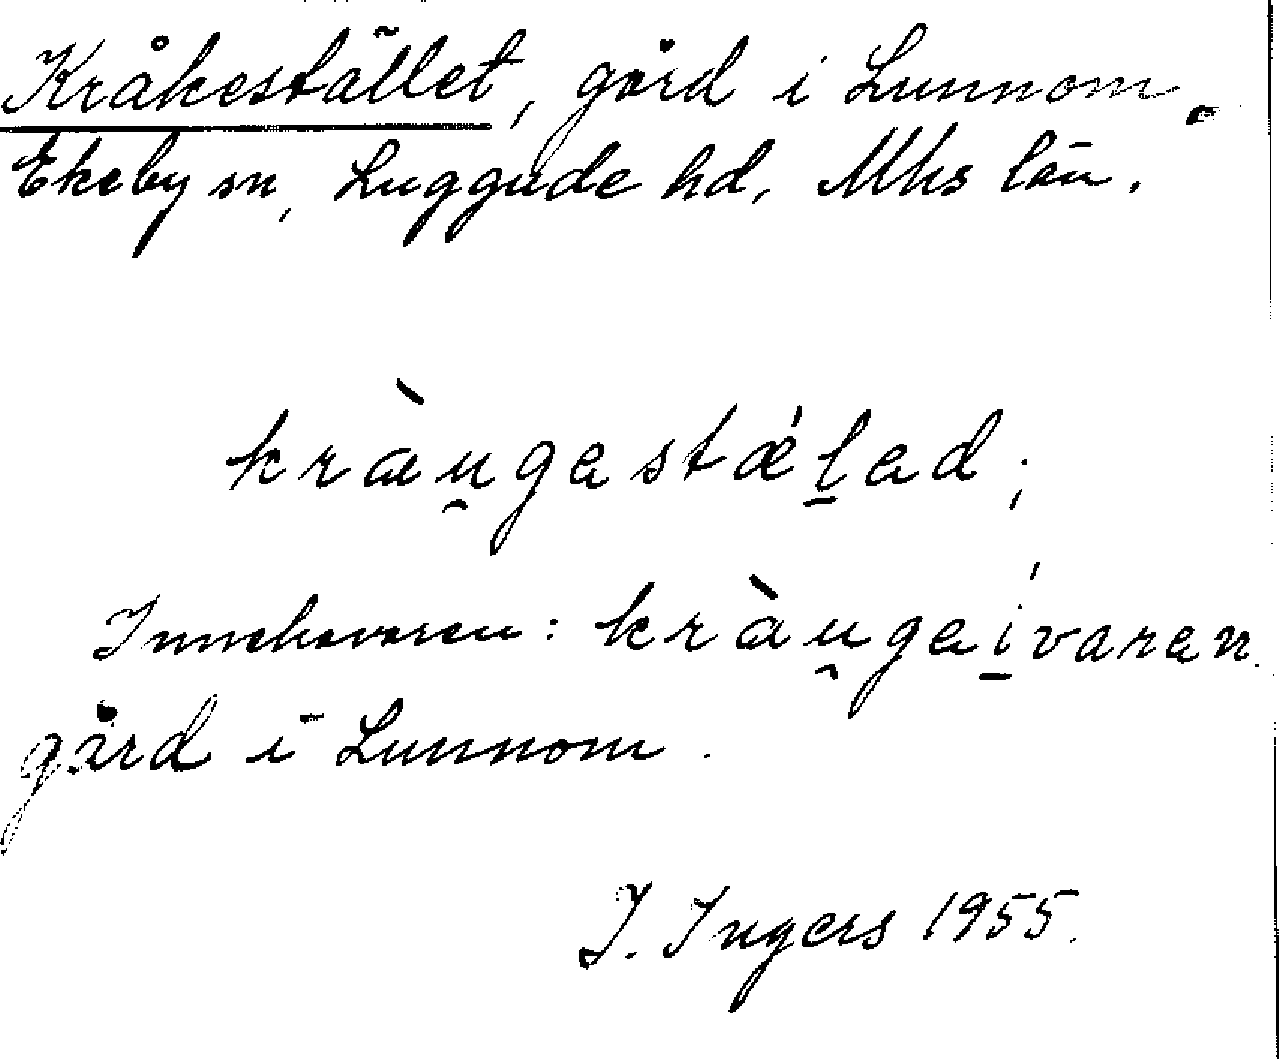 Kråkestället, gård i Lunnom.
Ekeby sn, Luggude hd, Mhs län.
kràu̯gastǽl̲ad;
Innehavaren: kràu̯gaí̲varan.
gård i Lunnom.
I. Ingers 1955.